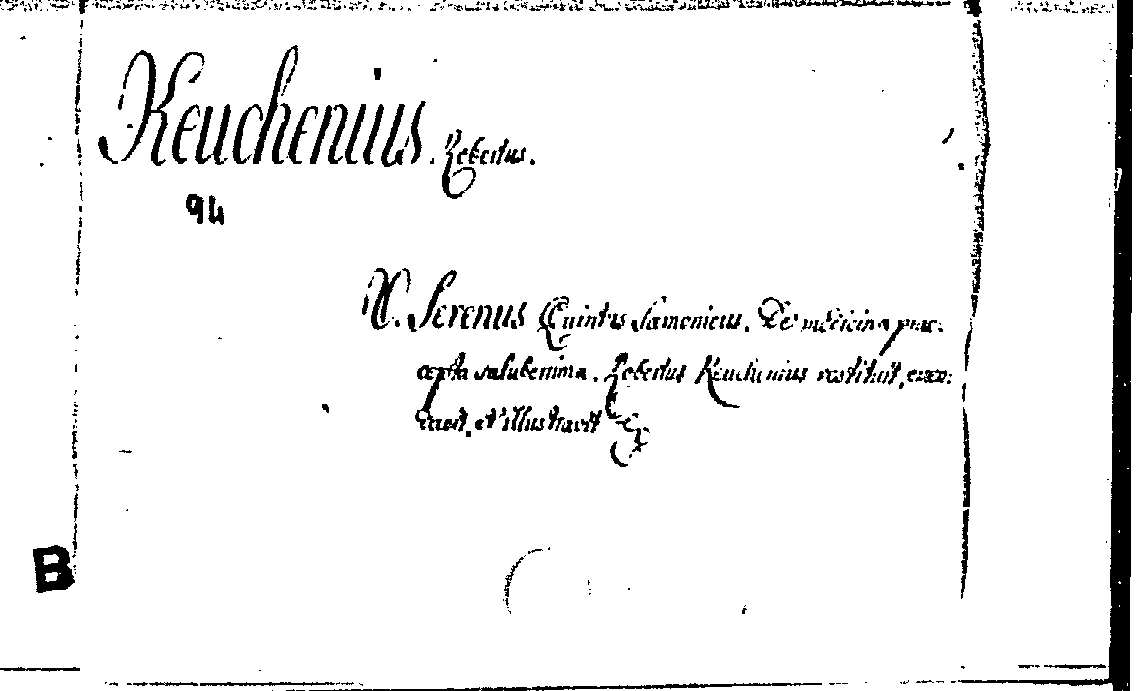 Keuchenius. Robertus.
94
V. Serenus Quintus Samonicus. De medicina prae-
cepta saluberrima. Robertus Keuchenius restituit, emen-
davit, et illustravit
B